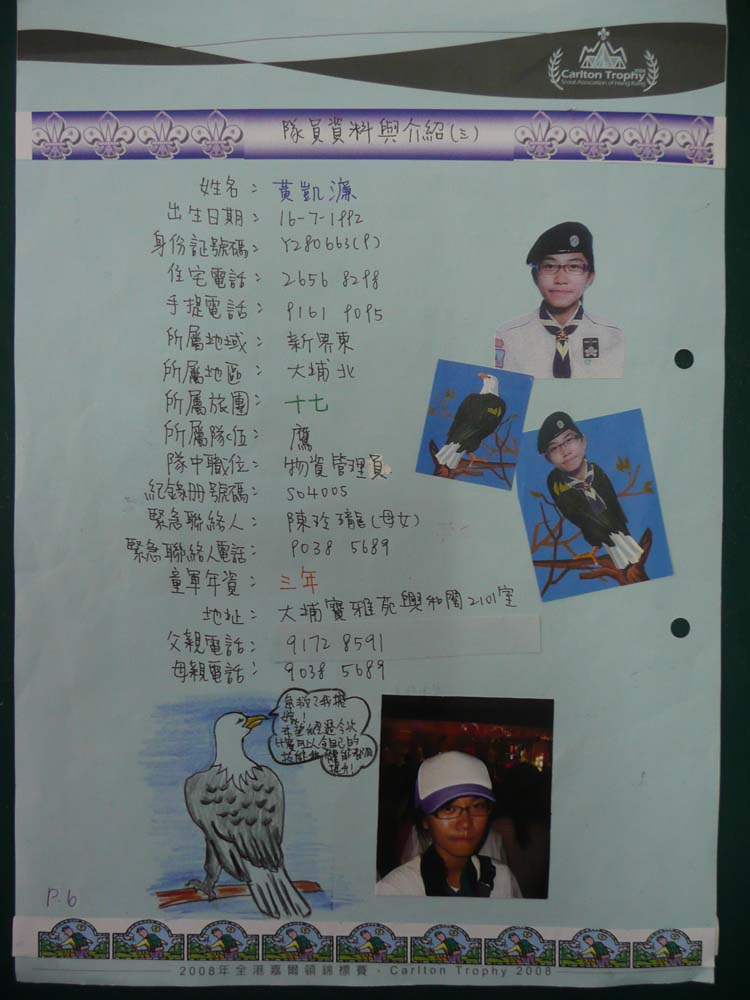 Carlton Trophy
Scout Association of Hong Kong
隊員資料與介紹(三)
姓名: 黃凱濂
出生日期: 16-7-1992
身份証號碼: Y280663(9)
住宅電話: 2656 8298
手提電話: 9161 9095
所屬地域: 新界東
所屬地區: 大埔北
所屬旅團: 十七
所屬隊伍: 鷹
隊中職位: 物資管理員
紀錄冊號碼: S04005
緊急聯絡人: 陳玲瓏(母女)
緊急聯絡人電話: 9038 5689
童軍年資: 三年
地址: 大埔寶雅苑興和閣2101室
父親電話: 9172 8591
母親電話: 9038 5689
P.6
2008年全港嘉爾頓錦標賽 · Carlton Trophy 2008